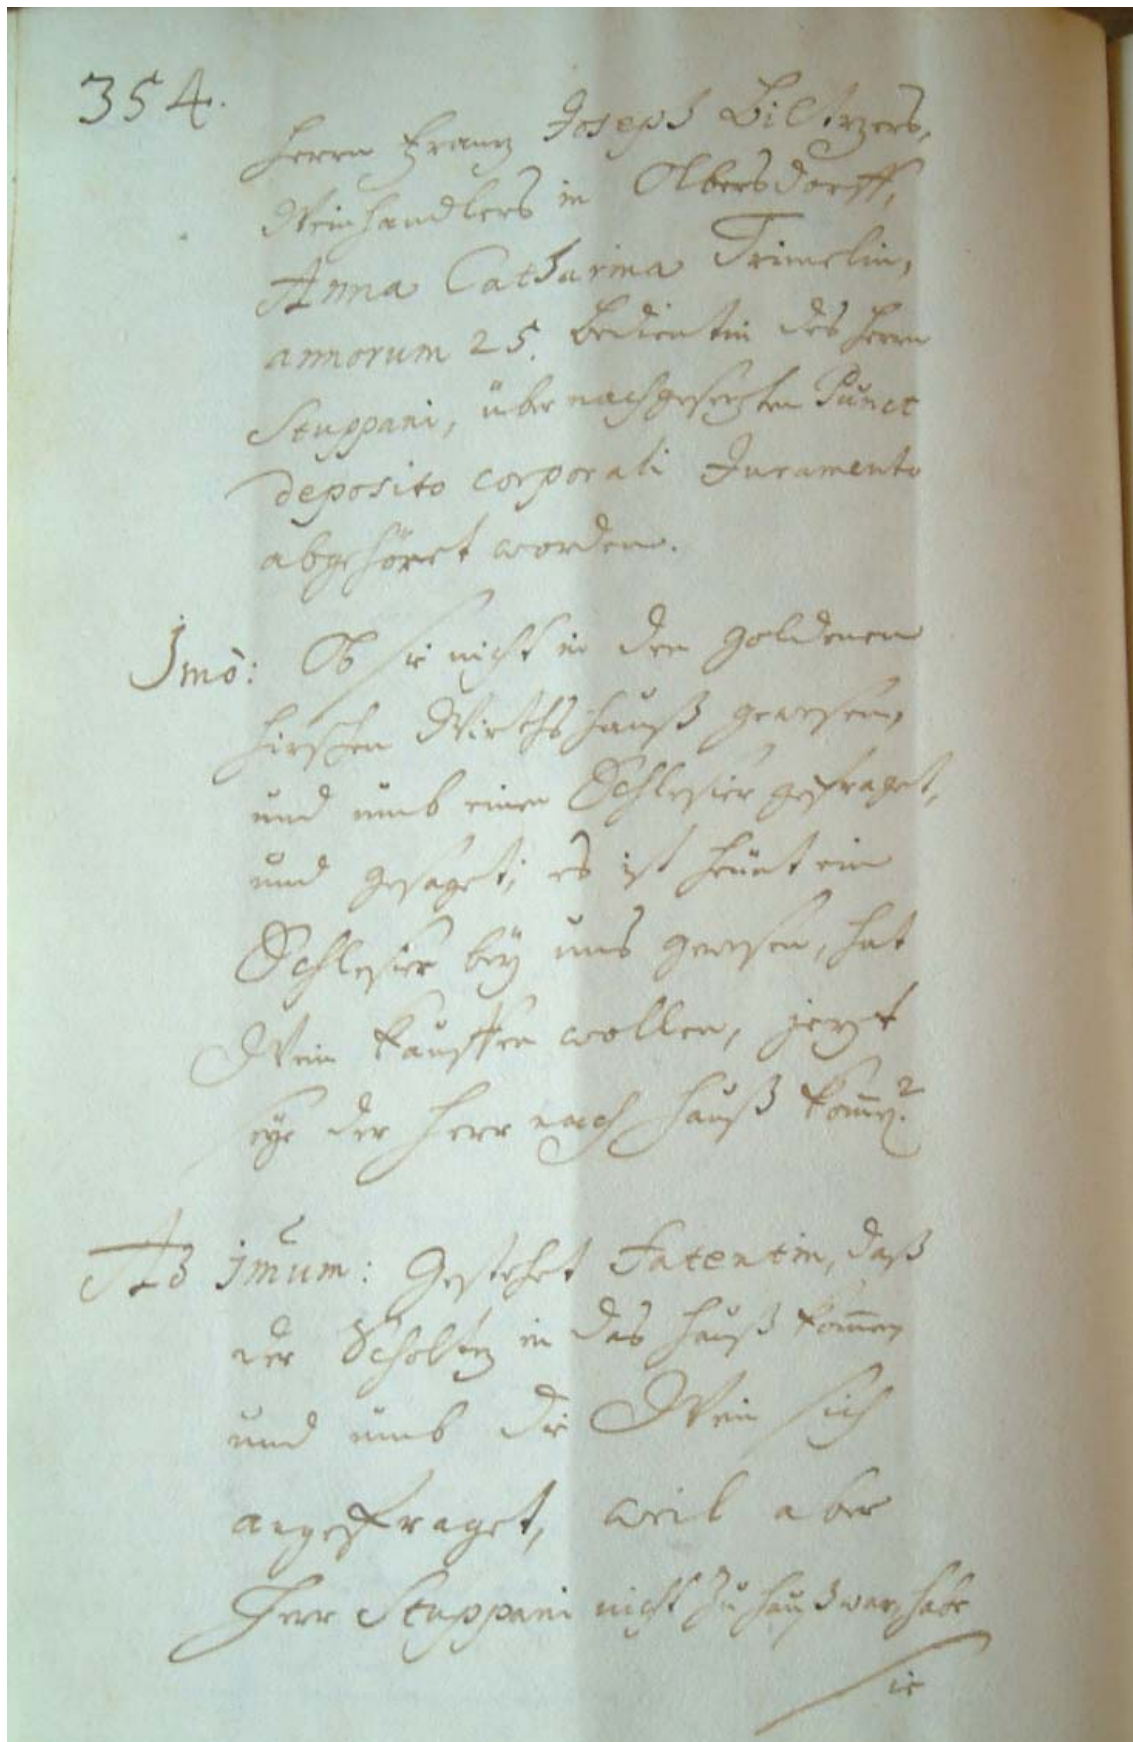 354.
Herrn Frantz Joseph Biltzers,
Weinhandlers in Olbersdorff,
Anna Catharina Trimelin,
annorum 25. Bedientin des Herrn
Stuppani, über nachgesetzten Punct
deposito corporali Juramento
abgehöret worden.
Imò: Ob sie nicht in den goldenen
Hirschen Wirthshauß gewesen,
und umb einen Schlesier gefraget,
und gesaget; es ist heünt ein
Schlesier bey uns gewesen, hat
Wein kauffen wollen, jetzt
seye der Herr nach Hauß kom̄en?
Ad imum: Gestehet Fatentin, daß
der Scholtz in das Hauß kom̄en
und umb die Wein sich
angefraget, weil aber
Herr Stuppani nicht zu Hauß war, habe
sie